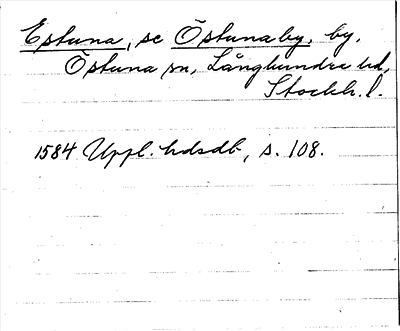 Estuna, se Östunaby, by,
Östuna sn, Långhundra hd,
Stockh. l.
1584 Uppl. hdsdb, s. 108.